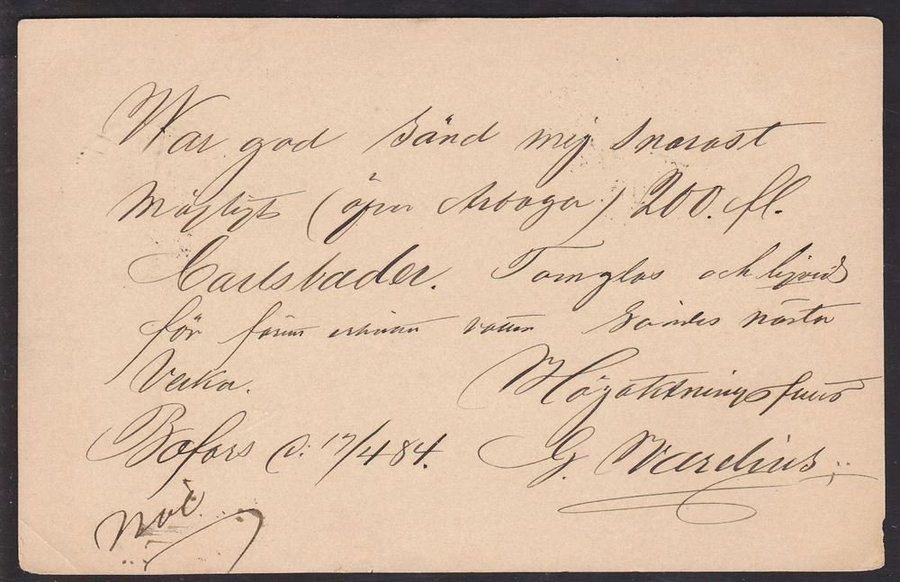 War god Sänd mig snarast
möjligt (öfver Arboga) 200. fl.
Carlsbader. Tomglas och liqvid
för förut erhållet vatten Sändes nästa
Vecka.
Högaktningsfullt
Bofors d: 17/4 84. G.